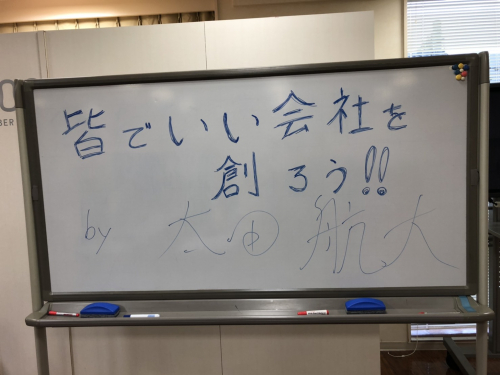 皆でいい会社を
創ろう!!
by 太田 航大
BER